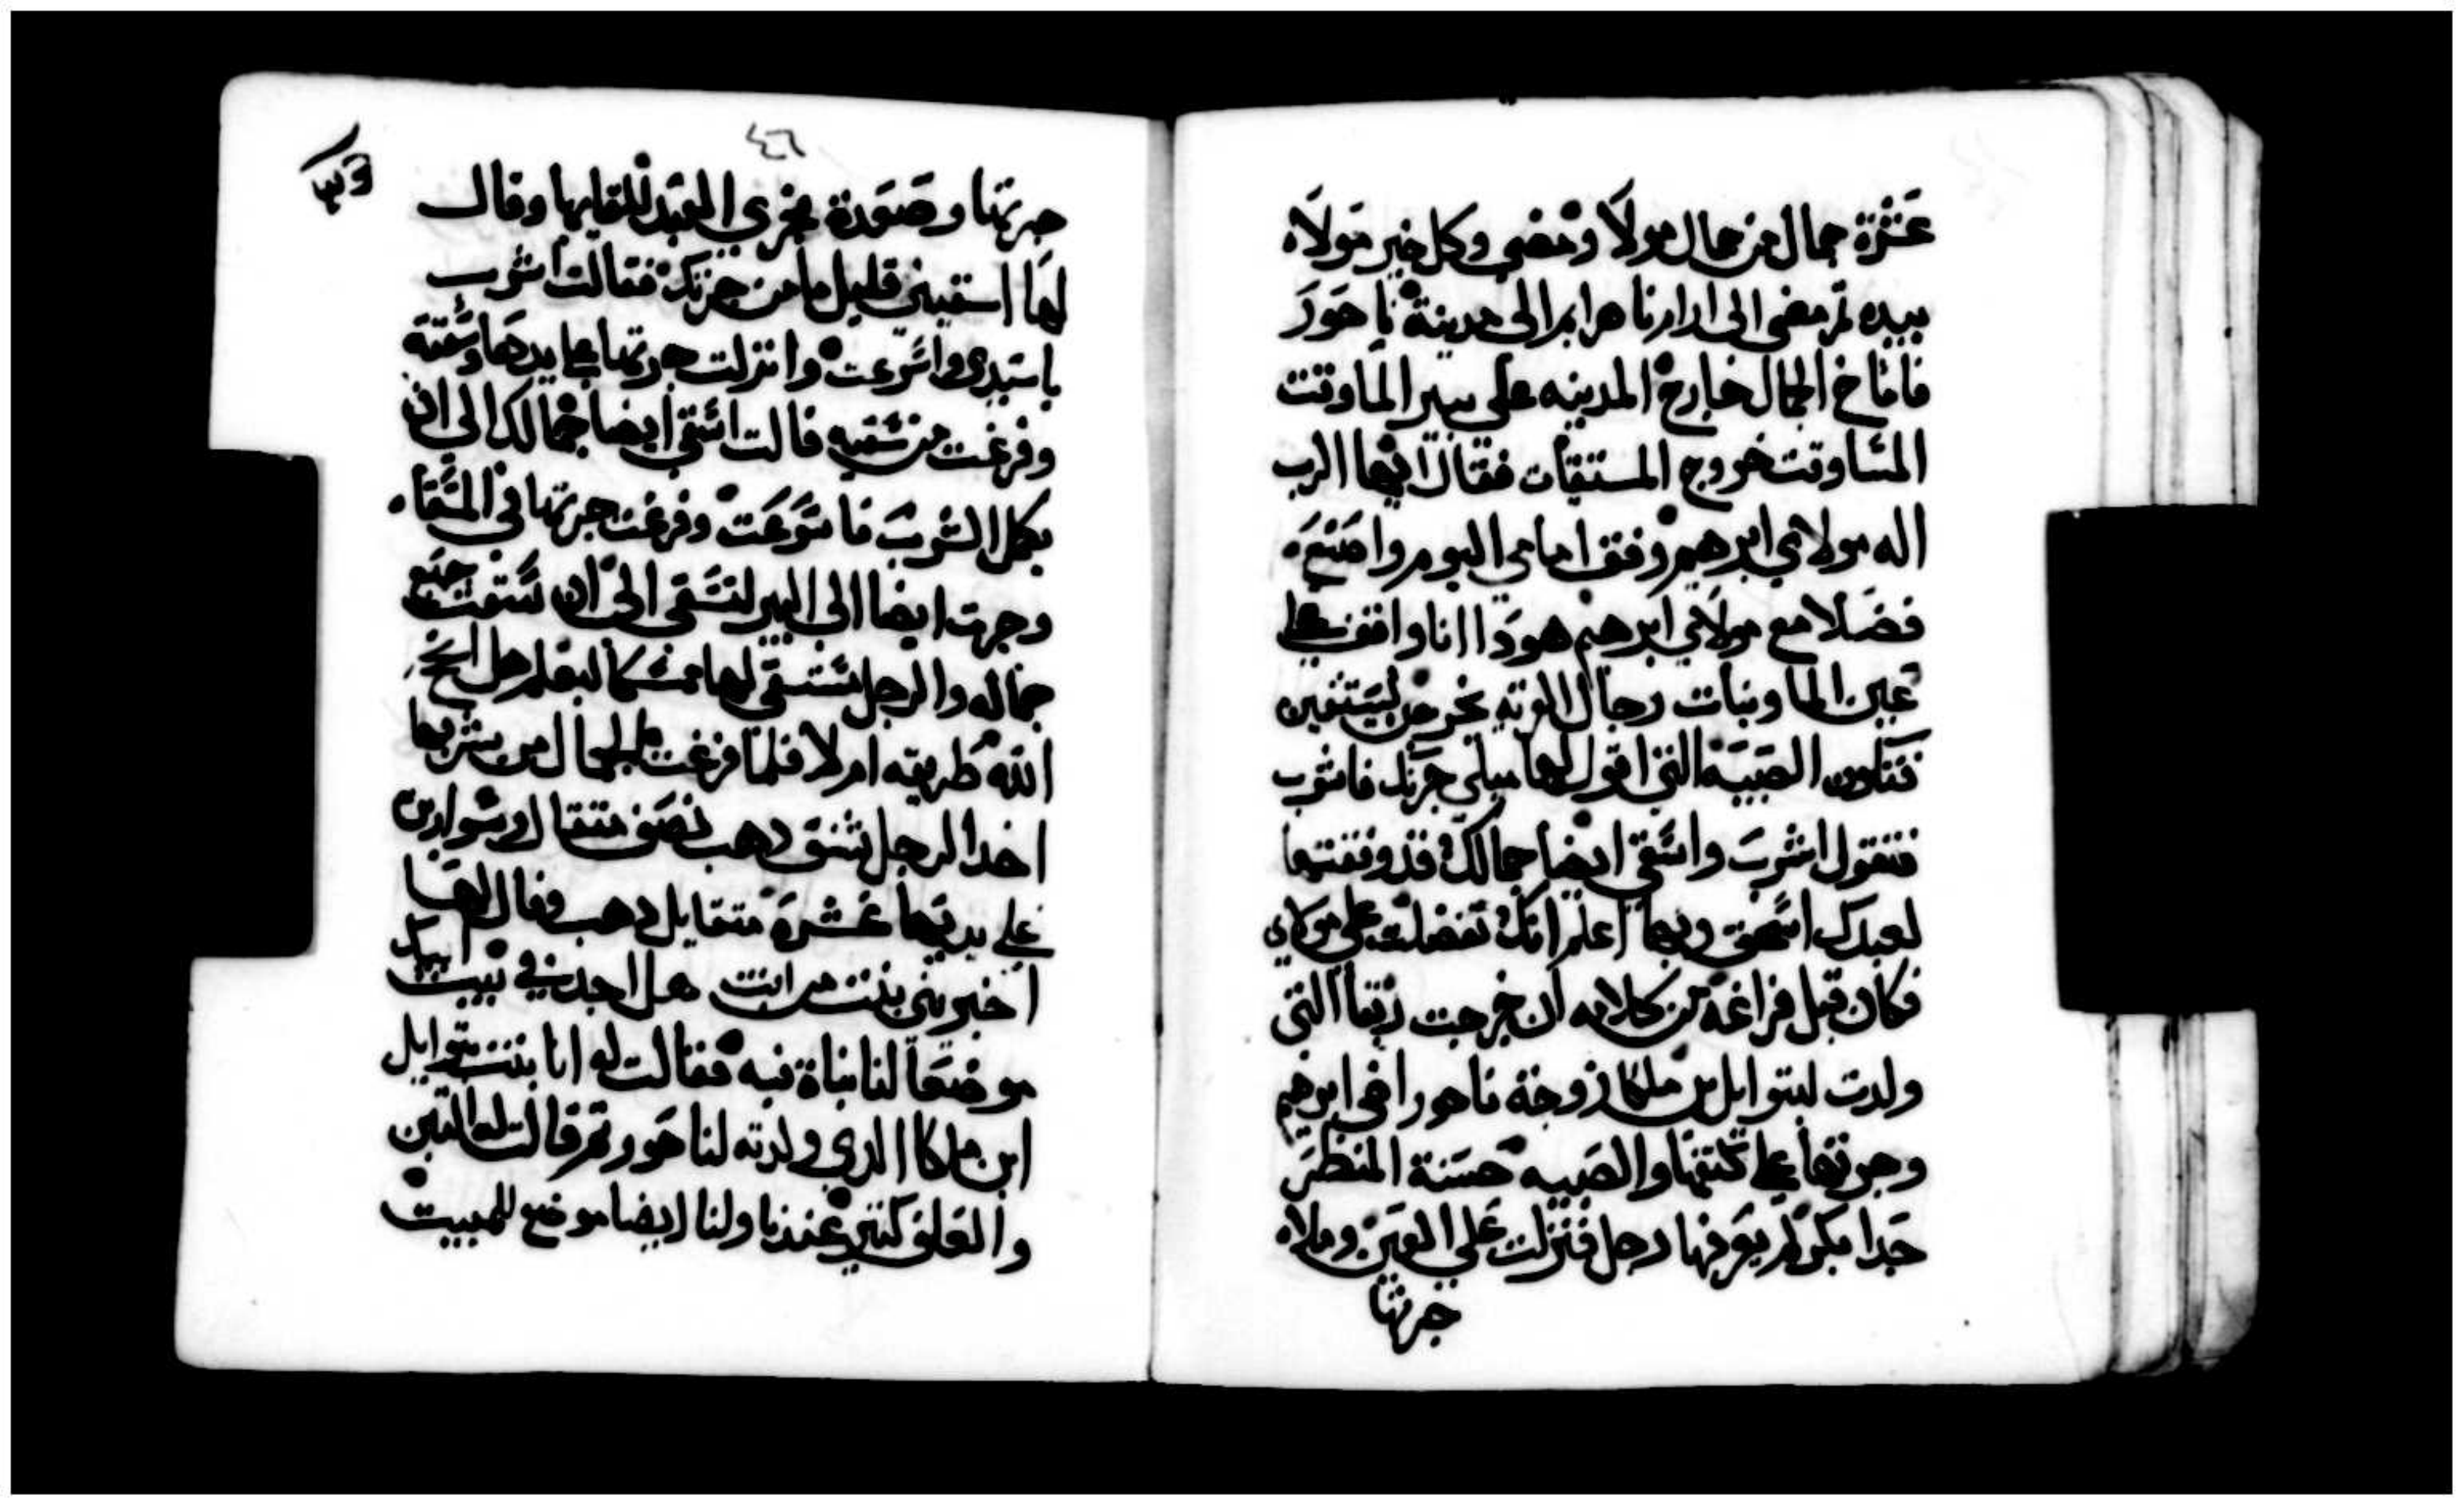 عشرة جمال من جمال مولاه ومضى وكل خير مولاه
بيده ثم مضى الى ارام نا هرايم الى مدينة ناحور
فاناخ الجمال خارج المدينه على بير الما وقت
المسا وقت خروج المستقيات فقال ايها الرب
اله مولاي ابرهيم وفق امامي اليوم واصنع
فضلا مع مولاي ابرهيم هودا انا واقف على
عين الما وبنات رجال القريه يخرجن ليستقين
فتكون الصبية التى اقول لها ميلي جرتك فاشرب
فتقول اشرب واسقى ايضا جمالك قد وفقتها
لعبدك اسحق وبها اعلم انك تفضلت على مولاي
فكان قبل فراغه من كلامه ان خرجت رفقا التى
ولدت لبتوايل بن ملكا زوجة ناحور اخى ابرهيم
وجرتها على كتفها والصبيه حسنة المنظر
جدا بكر لم يعرفها رجل فنزلت على العين وملاه
جرتها
٤٦
جرتها وصعدة فجرى العبد للقايها وقال
لها اسقينى قليل ما من جرتك فقالت اشرب
ياسيدى واسرعت وانزلت جرتها على يدها وسقته
وفرغت من سقيه قالت استقي ايضا جمالك الى ان
يكمل الشرب فاسرعت وفرغت جرتها في المسقاه
وجرت ايضا الى البير لتستقى الى ان سقت جميع
جماله والرجل مستسقى لها ممسكا ليعلم هل انجح
الله طريقه ام لا فلما فرغت الجمال من شربها
اخد الرجل شنق دهب نصف متقال وسوارين
على يديها عشرة متقايل دهب وقال لها
اخبرينى بنت من انت هل اجد في بيت ابيك
موضعا لنا نباة فيه فقالت له انا بنت بتوايل
ابن ملكا الدي ولدته لناحور ثم قالت له التبن
والعلف كتير عندنا ولنا ايضا موضع للمبيت